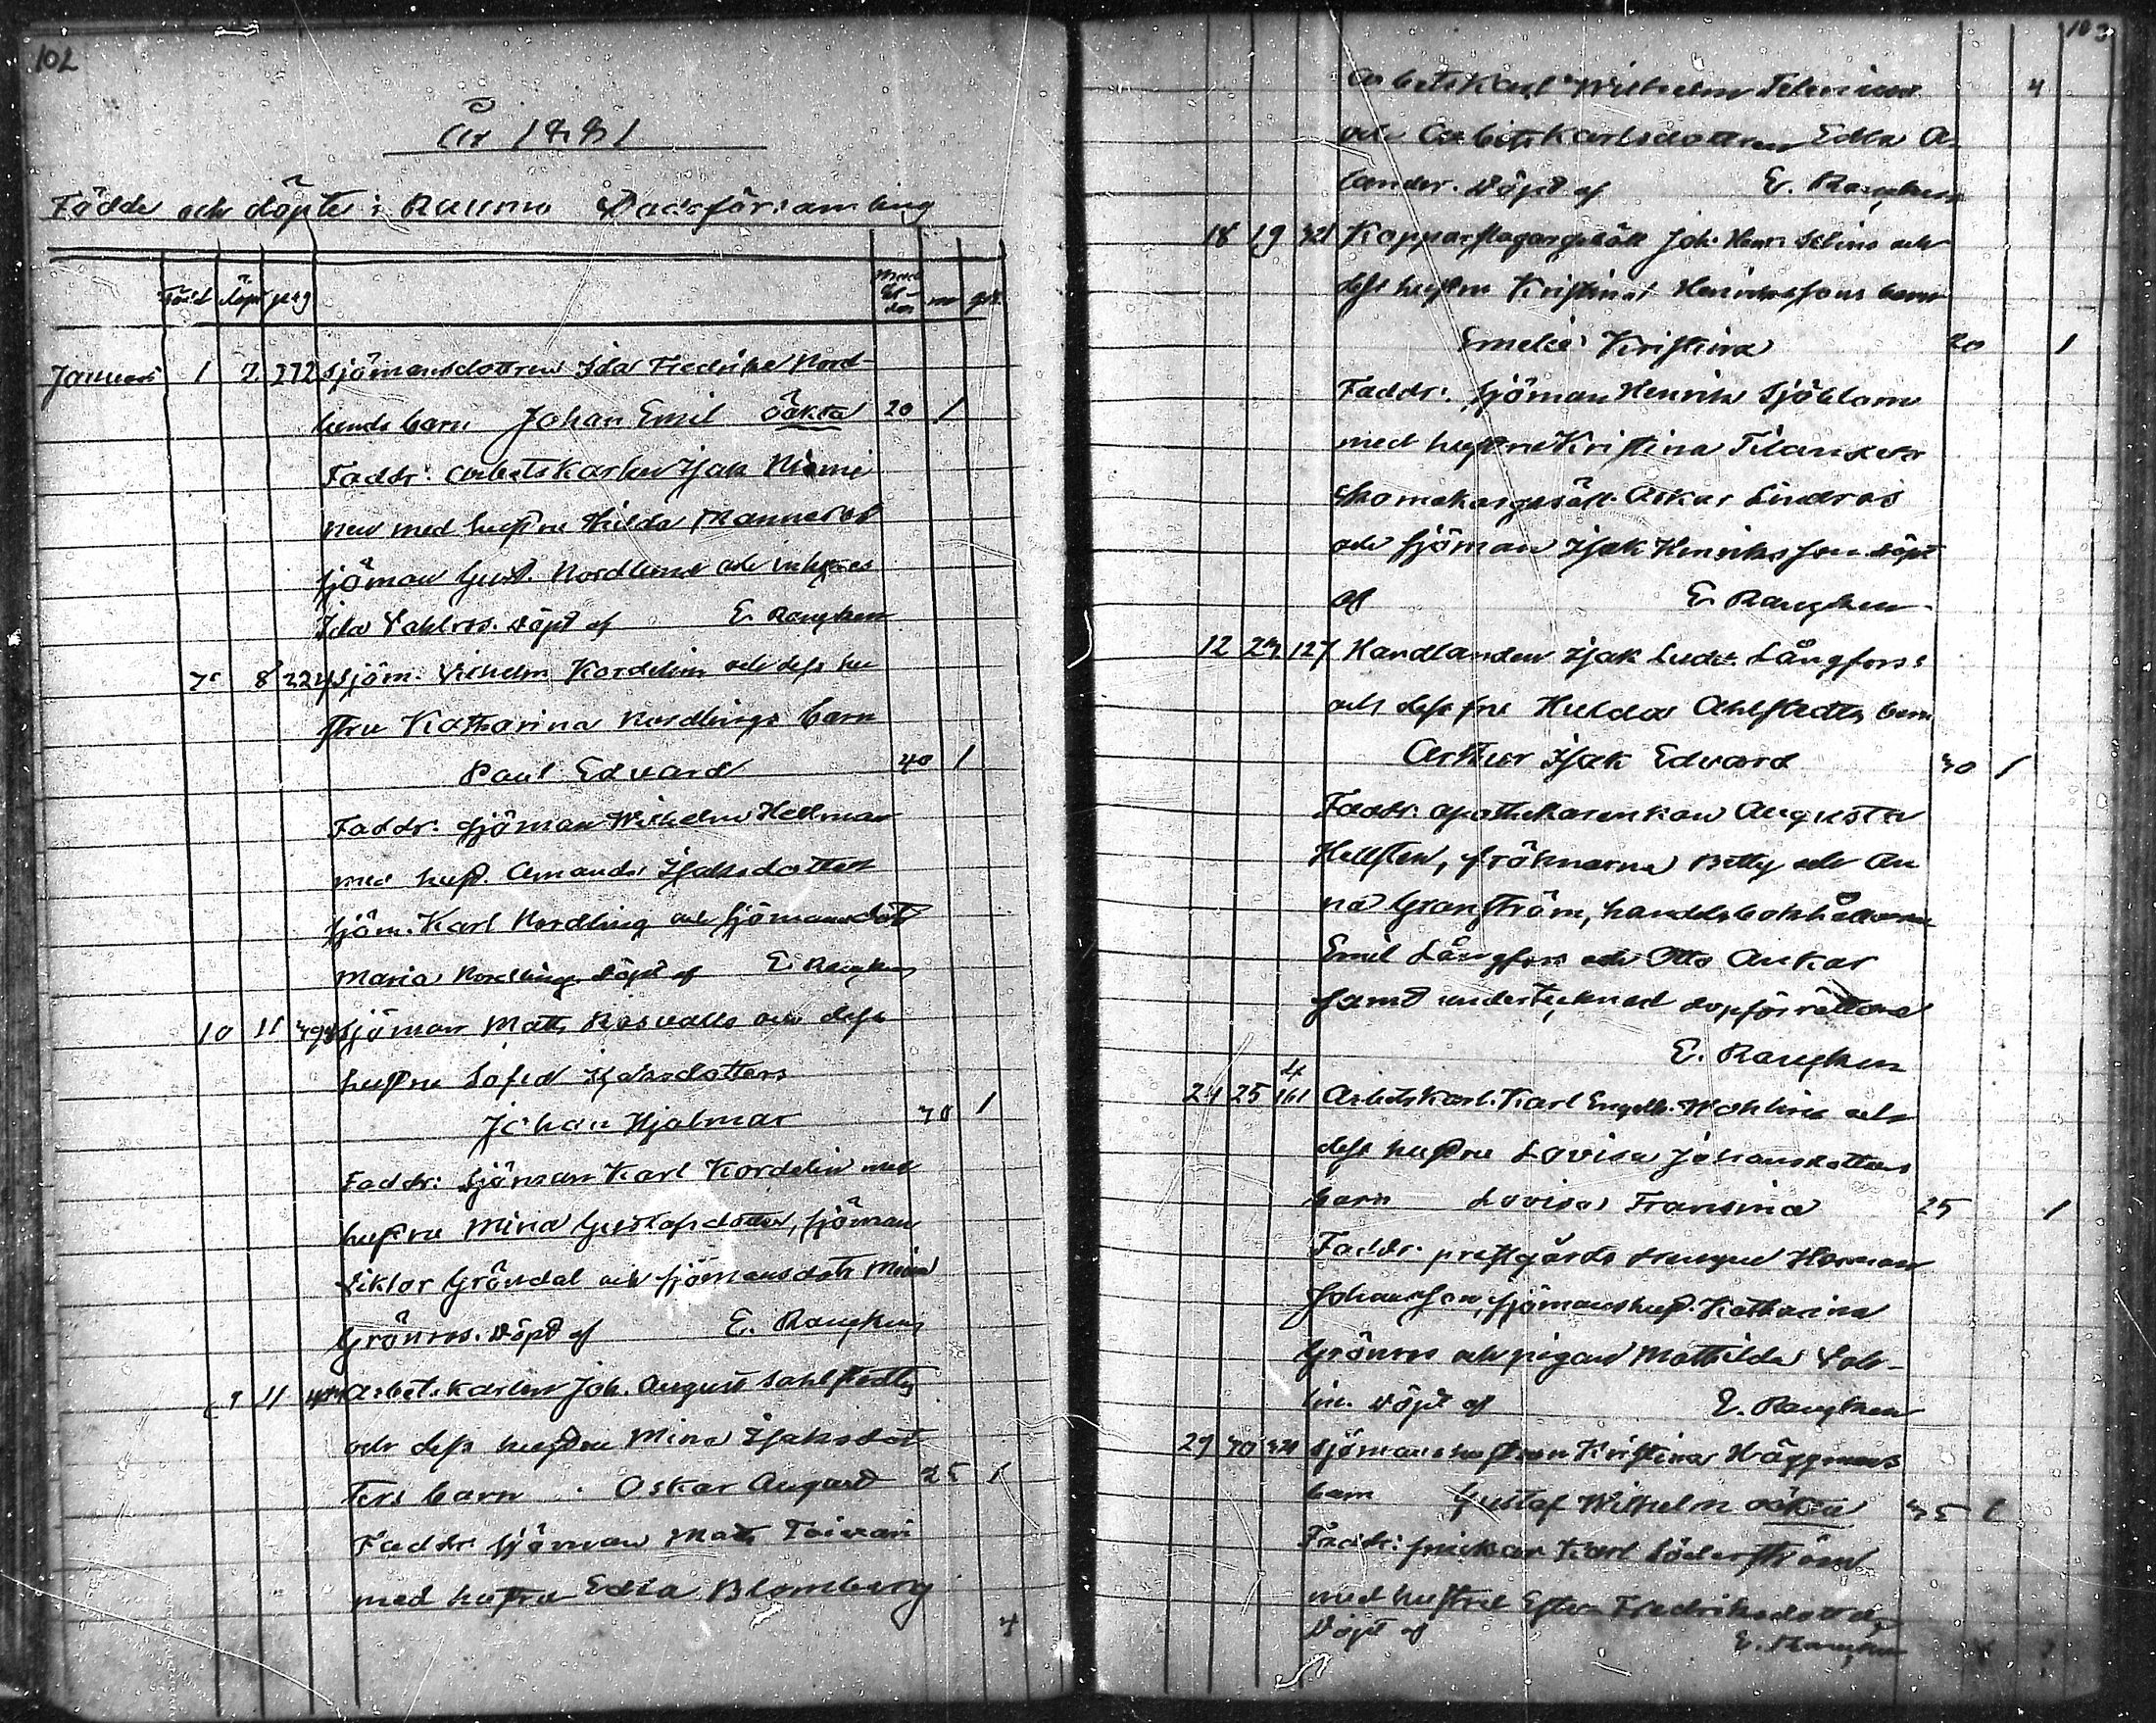 102
År 1881
Födde och döpte i Raumo Stadsförsamling
Född döpt pag
Januari 1 2. 272 Sjömansdottren Ida Fredrika Nord-
lunds barn Johan Emil oäkta 20 1
Faddr: arbetskarlen Isak Niemi
nen med hustru Hilda Mannerós
sjöman Gust. Nordlund och inhyses
Ida Dahlros. Döpt af E. Rangken
8 224 Sjöm. Vilhelm Kordelin och dess hu
stru Katharina Nordlings barn
Paul Edvard 40 1
Faddr: sjöman Wilhelm Hellman
med hust. Amanda Isaksdotter
sjöm. Karl Nordling och sjömansdott
Maria Nordling. Döpt af E. Rangken
10 11 Sjöman Matts Rosvalls och dess
hustru Sofia Isaksdotters
Johan Hjalmar 30 1
Faddr: Sjöman Karl Kordelin med
hustru Mina Gustafsdotter, sjöman
Viktor Gröndal och sjömansdotr Mina
Grönros. Döpt af E. Rangken
9 11 Arbet.karlen Joh. August Sahlstedts
och dess hustru Mina Isaksdot
ters barn . Oskar August 25 1
Faddr: sjöman Matts Toivari
med hustru Edla Blomberg
4
103
arbetskarl Wilhelm 4
och Arbetskarlsdottren Edla A-
lander. Döpt af E. Rangken
18 19 321 Kopparslagargesäll Joh. Henr. Selins och
dess hustru Kristina Henrikssons barn
Emelie Kristina 20 1
Faddr: sjöman Henrik Sjöblom
med hustru Kristina Tilander
Skomakargesäll Oskar Lindros
och sjöman Isak Henriksson. Döpt
af E. Rangken
12 23 127 Handlanden Isak Ludv. Långfors
och dess fru Hulda Ahlstedts barn
Arthur Isak Edvard 30 1
Faddr: apothekarenkan Augusta
Hellsten, fröknarna Betty och An
na Granström, handelsbokhållarena
Emil Långfors och Otto Ankar
samt undertecknad dopförrättare
E. Rangken
24 25 161 Arbetskarl. Karl Engelb. Wahlins och
dess hustru Lovisa Johansdotters
barn Lovisa Fransina 25 1
Faddr: prestgårds drengen Herman
Johansson, sjömanshust. Katharina
Grönros och pigan Mathilda Dah-
lin. Döpt af E. Rangken
29 30 321 Sjömanshustrun Kristina Häggmans
barn Gustaf Wilhelm oäkta 35 1
Faddr: snickar Karl Söderström
med hustru Ester Fredriksdotter
Döpt af E. Rangken